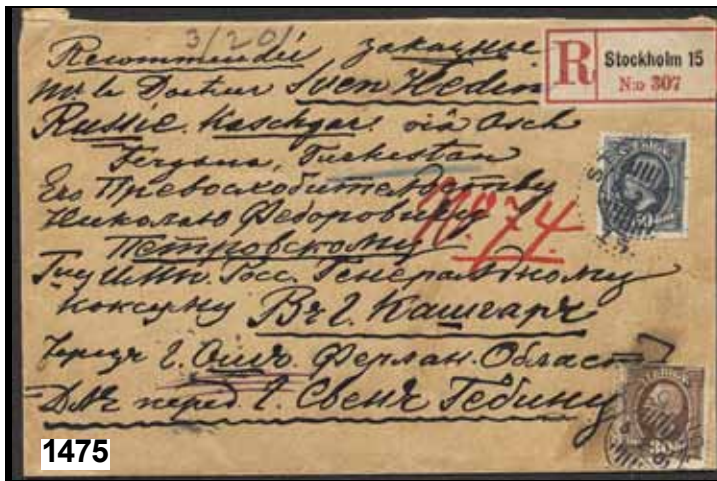 3/20/
Recommendée заказные
R Stockholm 15
N:o 307
Mr le Docteur Sven Hedin
Russie. Kaschgar. viâ Osch
Fergana, Turkestan
50
Его Превосходительству
No. 74.
Николаю Федоровичу
Петровскому
Гну Имп. Росс. Генеральному
Консулу Въ г. Кашгаръ
Черезъ г. Ошъ. Ферган. Област
30
Для перед. г. Свенъ Гедину
1475